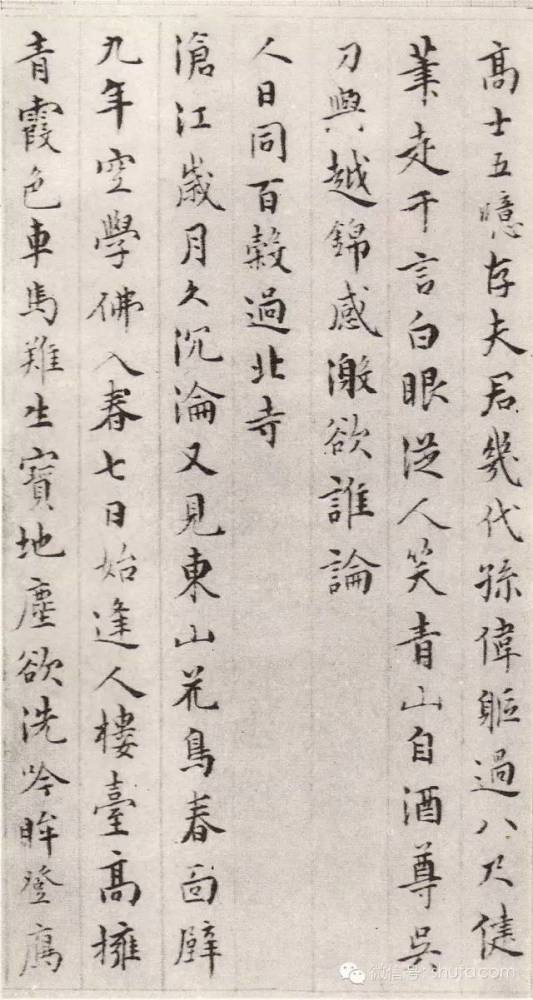 高士五噫存夫君幾代孫偉軀過八尺健
筆走千言白眼從人笑青山自酒尊吳
刀與越錦感激欲誰論
人日同百穀過北寺
滄江歲月久沉淪又見東山花鳥春面壁
九年空學佛入春七日始逢人樓臺高擁
青霞色車馬難生寶地塵欲洗吟眸登鴈
微信号: shufa.com